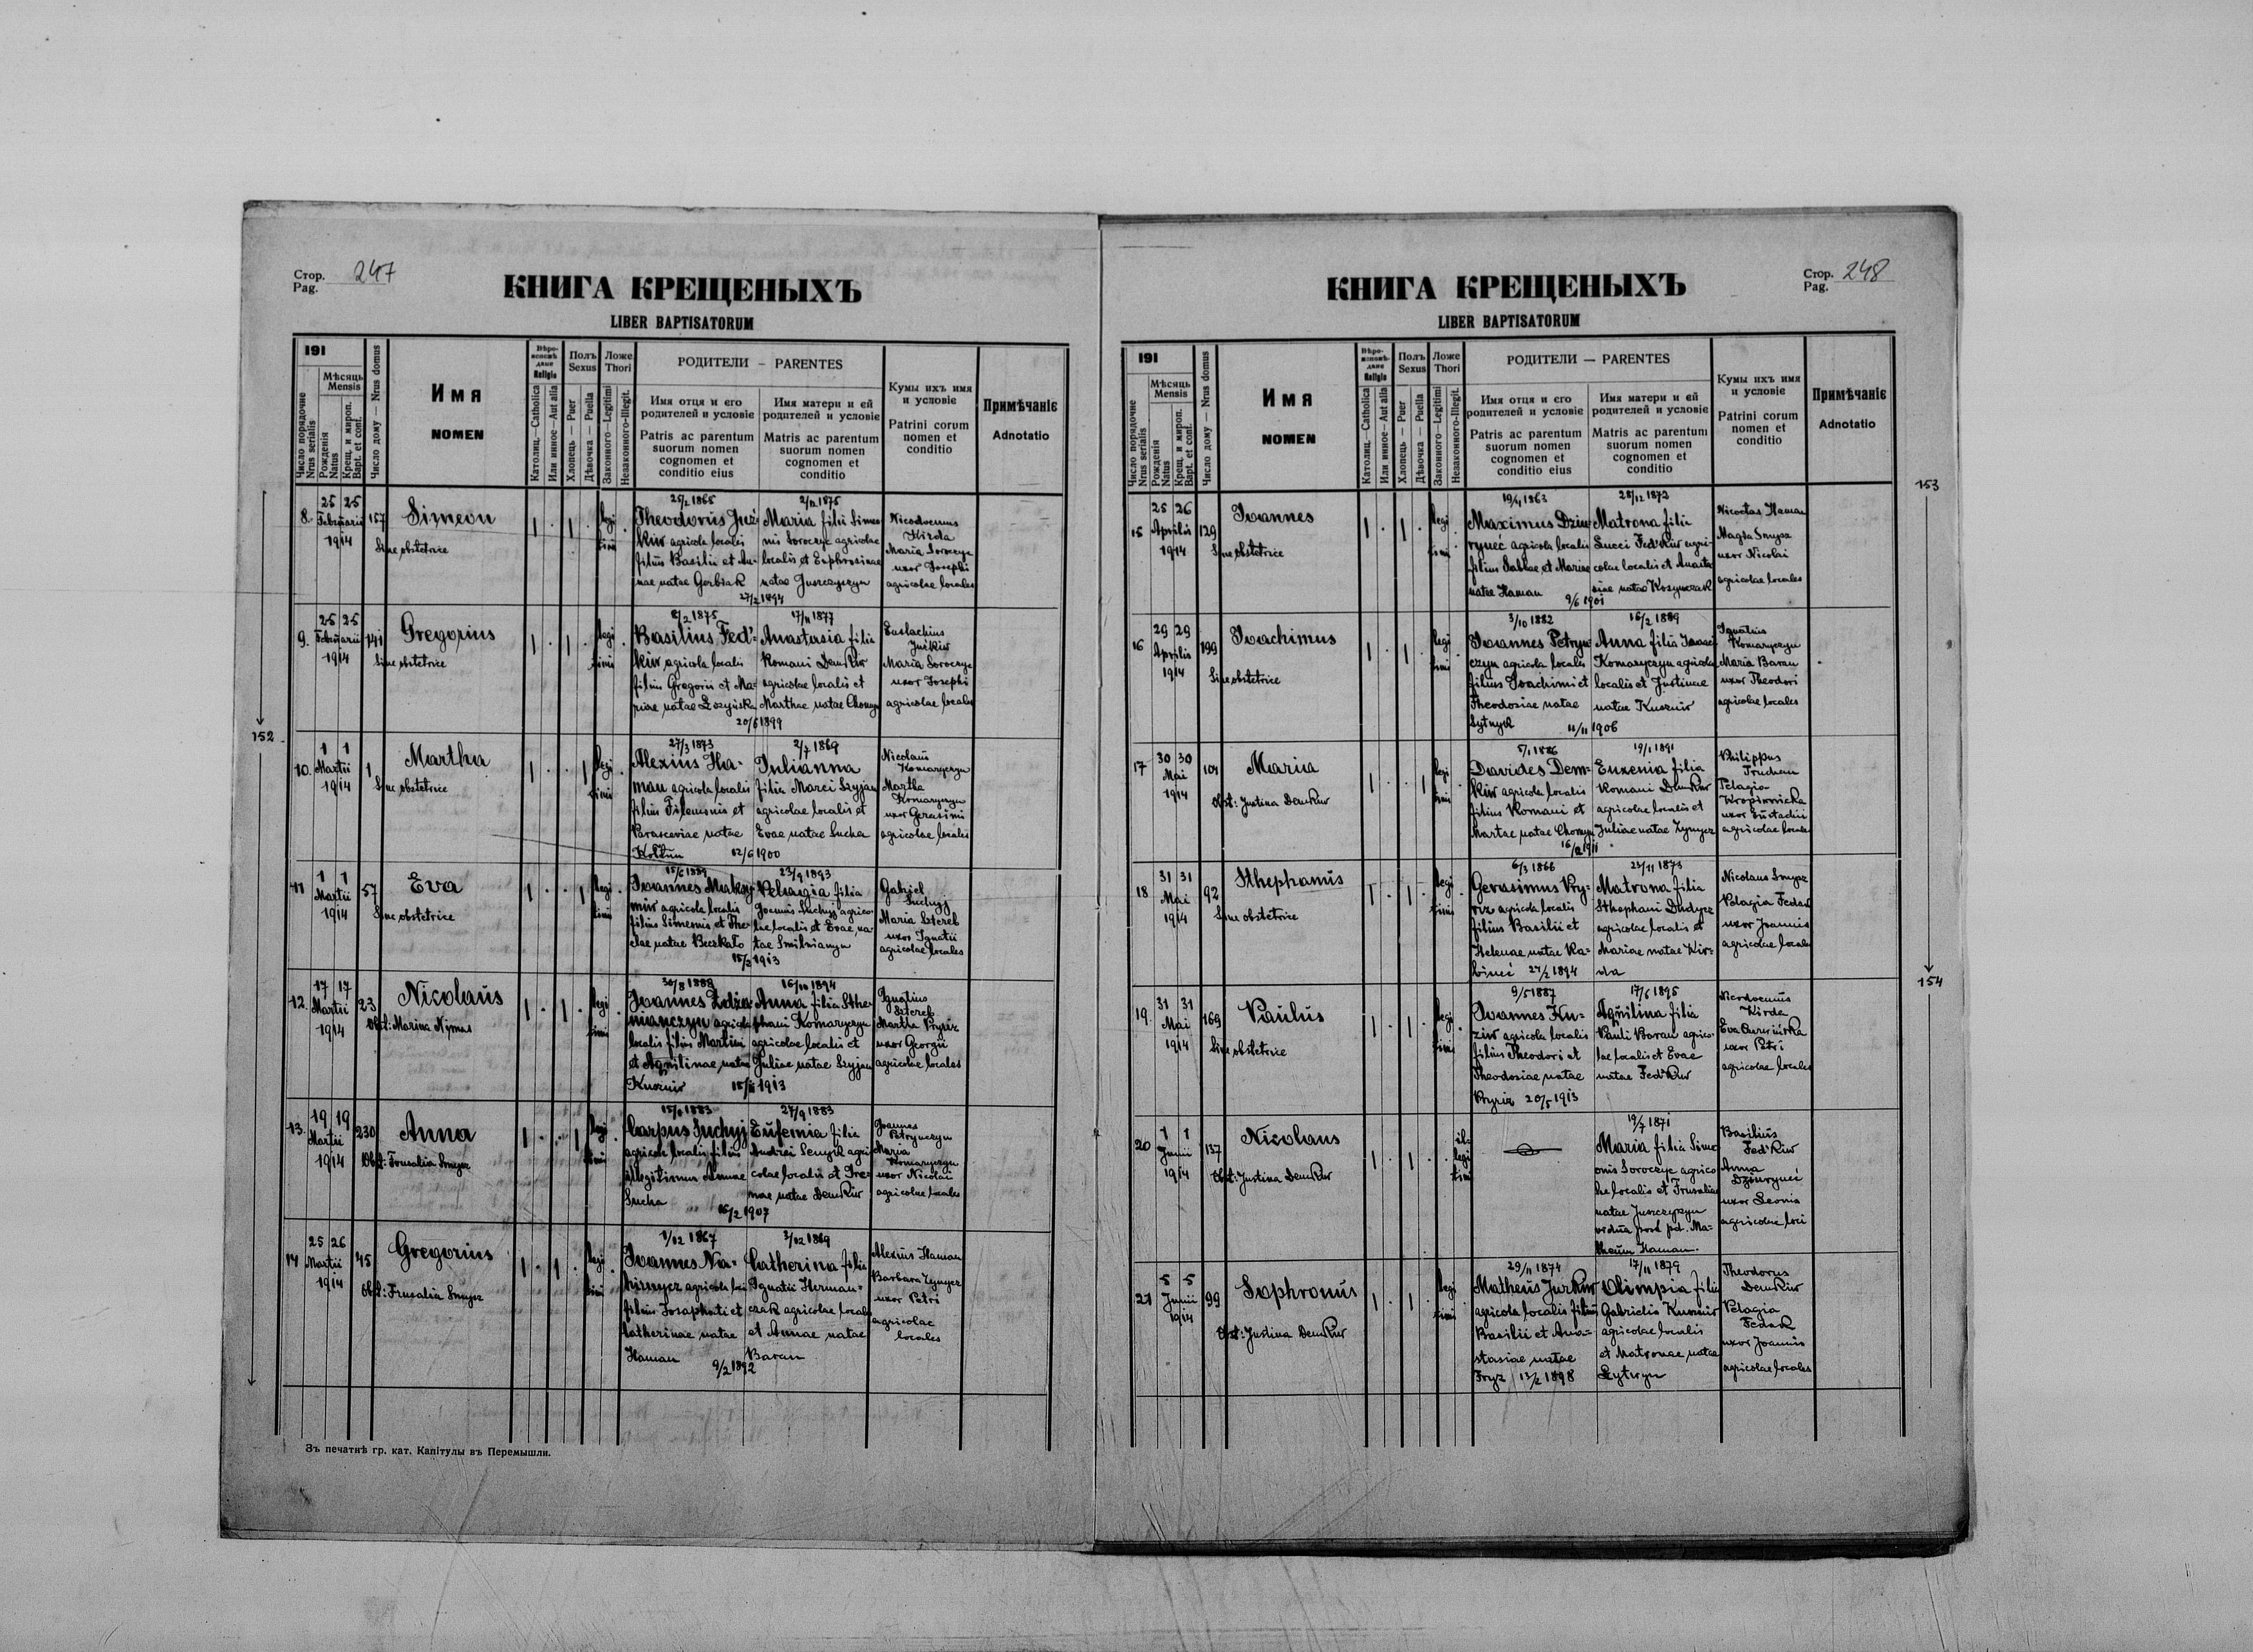 Стор. 247
Pag.
КНИГА КРЕЩЕНЫХЪ
LIBER BAPTISATORUM
191
Число порядочне
Nrus serialis
Мѣсяць
Mensis
Рожденія
Natus
Крещ. и мироп.
Bapt. et conf.
Число дому — Nrus domus
Имя
NOMEN
Вѣро-
исповѣ-
дане
Religio
Католиц.—Catholica
Или инное—Aut alia
Полъ
Sexus
Хлопець — Puer
Дѣвочка — Puella
Ложе
Thori
Законного—Legitimi
Незаконного—Illegit.
РОДИТЕЛИ — PARENTES
Имя отця и его
родителей и условіе
Patris ac parentum
suorum nomen
cognomen et
conditio eius
Имя матери и ей
родителей и условіе
Matris ac parentum
suorum nomen
cognomen et
conditio
Кумы ихъ имя
и условіе
Patrini corum
nomen et
conditio
Примѣчаніе
Adnotatio
8. 25 25 Februarii 1914
157
Simeon
Sine obstetrice
legi
timi
25/2 1865
kiw agricola localis
filius Basilii et An-
nae natae Gorbiak
1875
Maria filia Simeo
nis Soroczyc agricolae
localis et Euphrosinae
natae Juszczyszyn
27/2 1894
Nicodemus
Kirda
Maria Soroczyc
uxor Josephi
agricolae locales
9. 25 25 Februarii 1914
141
Gregorius
Sine obstetrice
legi
timi
1875
Basilius Fed'-
kiw agricola localis
filius Gregorii et Ma-
riae natae Łozyńska
17/11 1877
Anastasia filia
Romani Demkiw
agricolae localis et
Marthae natae Chomyn
20/6 1899
Eustachius
Jurkiw
Maria Soroczyc
uxor Josephi
agricolae locales
152
10. 1 1 Martii 1914
1
Martha
Sine obstetrice
legi
timi
27/3 1873
Alexius Ha-
man agricola localis
filius Filemonis et
Parasceviae natae
Kołtun
2/7 1869
Julianna
filia Marci Szyjan
agricolae localis et
Evae natae Sucha
12/6 1900
Nicolaus
Komaryczyn
Martha
Komaryczyn
uxor Gerasimi
agricolae locales
11 1 1 Martii 1914
57
Eva
Sine obstetrice
legi
timi
15/6 1889
Joannes Maksy
miw agricola localis
filius Simeonis et The-
clae natae Beczkało
23/9 1893
Pelagia filia
Joannis Suchyj agrico-
lae localis et Evae, na-
tae Smilnianyn
15/2 1913
Gabriel
Suchyj
Maria Szereb
uxor Ignatii
agricolae locales
12. 17 17 Martii 1914
23
Nicolaus
Obst: Marina Nymus
legi
timi
30/8 1888
localis filius Martini
et Aquilinae natae
Kusznir
16/10 1894
Anna filia Sthe-
phani Komaryczyn
agricolae localis et
Juliae natae Szyjan
1913
Ignatius
Szereb
Martha Pryriz
uxor Georgii
agricolae locales
13. 19 19 Martii 1914
230
Anna
Obst: Frusalia Smysz
legi
timi
1883
Carpus Suchyj
agricola localis filius
illegitimus Annae
Sucha
27/9 1883
Eufemia filia
Andreae Senyk agri
colae localis et Ire-
nae natae Demkiw
16/2 1907
Joannes
Petrynczyn
Maria
Komaryczyn
uxor Nicolai
agricolae locales
14 25 26 Martii 1914
45
Gregorius
Obst: Frusalia Smysz
legi
timi
1/12 1867
Joannes Na-
filius Josaphati et
Catherinae natae
Haman
3/12 1869
Catherina filia
Ignatii Herman-
czak agricolae localis
et Annae natae
Baran
9/2 1892
Alexius Haman
Barbara Zynycz
uxor Petri
agricolae
locales
Зъ печатнѣ гр. кат. Капітулы въ Перемышли.
Стор. 248
Pag.
КНИГА КРЕЩЕНЫХЪ
LIBER BAPTISATORUM
191
Число порядочне
Nrus serialis
Мѣсяць
Mensis
Рожденія
Natus
Крещ. и мироп.
Bapt. et conf.
Число дому — Nrus domus
Имя
NOMEN
Вѣро-
исповѣ-
дане
Religio
Католиц.—Catholica
Или инное—Aut alia
Полъ
Sexus
Хлопець — Puer
Дѣвочка — Puella
Ложе
Thori
Законного—Legitimi
Незаконного—Illegit.
РОДИТЕЛИ — PARENTES
Имя отця и его
родителей и условіе
Patris ac parentum
suorum nomen
cognomen et
conditio eius
Имя матери и ей
родителей и условіе
Matris ac parentum
suorum nomen
cognomen et
conditio
Кумы ихъ имя
и условіе
Patrini corum
nomen et
conditio
Примѣчаніе
Adnotatio
153
15 25 26 Aprilis 1914
129
Joannes
Sine obstetrice
legi
timi
1863
Maximus Dziu
ryneć agricola localis
filius Sabbae et Marinae
natae Haman
28/12 1872
Matrona filia
Lucci Fed'kiw agri-
colae localis et Anasta
siae natae Kozymczak
9/6 1901
Nicoetas Haman
Magda Smysz
uxor Nicolai
agricolae locales
16 29 29 Aprilis 1914
199
Joachimus
Sine obstetrice
legi
timi
3/10 1882
Joannes Petryn-
czyn agricola localis
filius Joachimi et
Theodosiae natae
Sytnyk
16/2 1889
Anna filia
Komaryczyn agricolae
localis et Justinae
natae Kusznir
11/11 1906
Ignatius
Komaryczyn
Maria Baran
uxor Theodori
agricolae locales
17 30 30 Mai 1914
104
Maria
Obst: Justina Demkiw
legi
timi
5/1 1886
Davides Dem-
kiw agricola localis
filius Romani et
Martae natae Chomyn
19/1 1891
Euxenia filia
Romani Demkiw
agricolae localis et
Juliae natae Zynycz
1911
Philippus
Truchan
Pelagia
Kropiwnicka
uxor Eustachii
agricolae locales
18 31 31 Mai 1914
92
Sthephanus
Sine obstetrice
legi
timi
6/3 1866
Gerasimus Pry-
riz agricola localis
filius Basilii et
Helenae natae Ka-
bineć 27/2 1894
23/11 1873
Matrona filia
Sthephani Dudycz
agricolae localis et
Mariae natae Kir-
da
Nicolaus Smysz
Pelagia Fedak
uxor Joannis
agricolae locales
154
19. 31 31 Mai 1914
169
Paulus
Sine obstetrice
legi
timi
9/5 1887
Joannes Ku-
ziw agricola localis
filius Theodori et
Theodosiae natae
Pryriz 20/5 1913
17/6 1895
Aquilina filia
Pauli Baran agrico-
lae localis et Evae
natae Fed'kiw
Nicodemus
Kirda
uxor Petri
agricolae locales
20 1 1 Junii 1914
137
Nicolaus
Obst: Justina Demkiw
il-
legi
timi
19/7 1871
Maria filia Sime
onis Soroczyc agrico
lae localis et Frusaliae
natae Juszczyszyn
vidua post pd. Ma-
theum Haman.
Basilius
Fed'kiw
Anna
Dziuryneć
uxor Leonis
agricolae loci
21 5 5 Junii 1914
99
Sophronius
Obst: Justina Demkiw
legi
timi
29/11 1874
Matheus Jurkiw
agricola localis filius
Basilii et Ana-
stasiae natae
Fryz 13/2 1898
17/11 1879
Olimpia filia
Gabrielis Kusznir
agricolae localis
et Matronae natae
Łytwyn
Theodorus
Demkiw
Pelagia
Fedak
uxor Joannis
agricolae locales